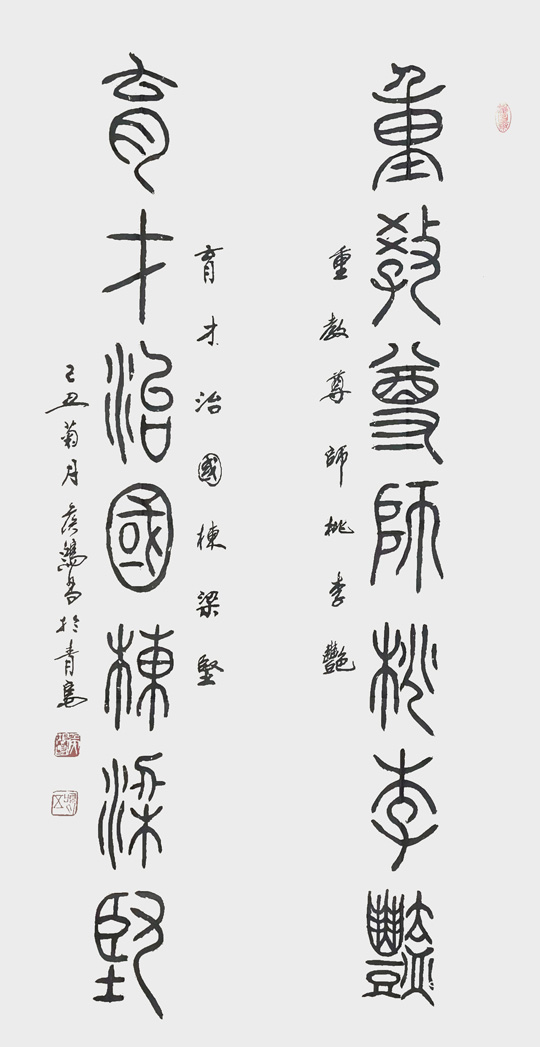 重教尊師桃李艷
重教尊師桃李艷
育才治國棟梁堅
育才治國棟梁堅
己丑菊月侯鴻昌於青島